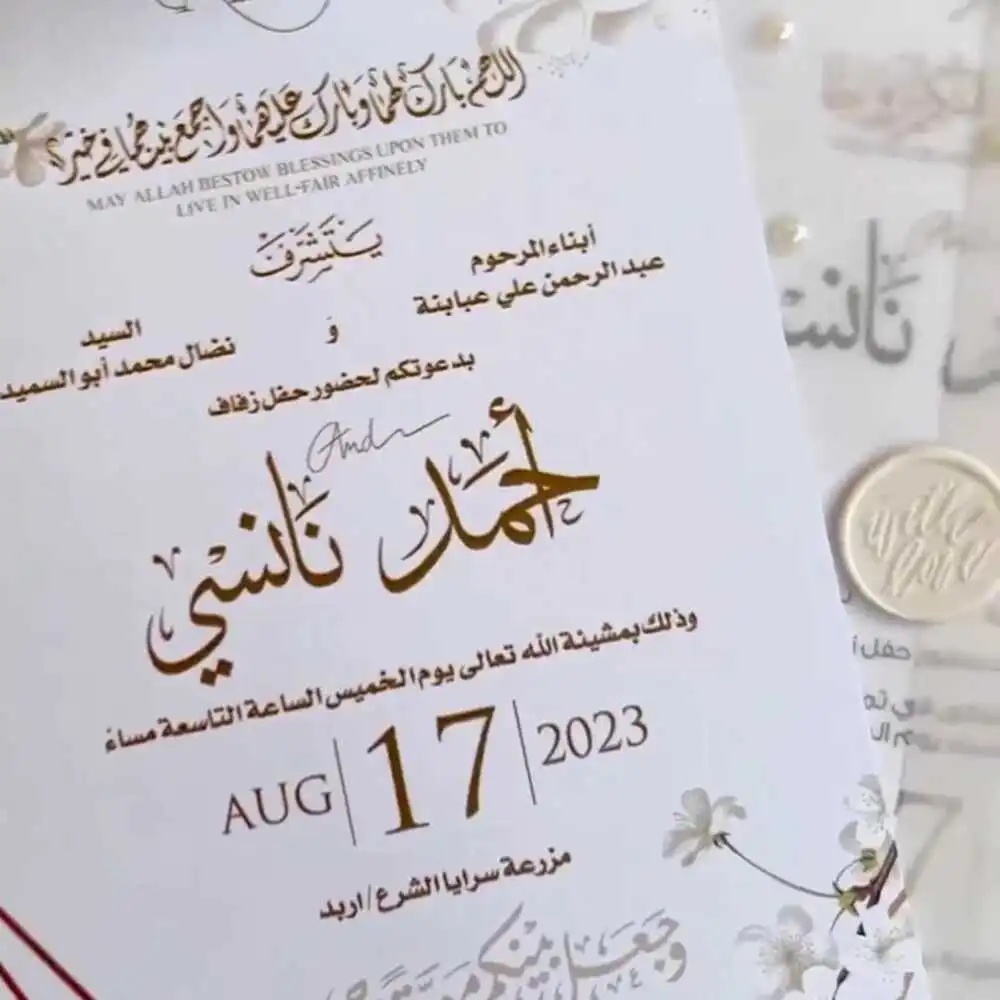 اللهم بارك لهما وبارك عليهما واجمع بينهما في خير
MAY ALLAH BESTOW BLESSINGS UPON THEM TO
LIVE IN WELL-FAIR AFFINELY
يتشرف
أبناء المرحوم
عبد الرحمن علي عبابنة
و
السيد
نضال محمد أبو السميد
بدعوتكم لحضور حفل زفاف
أحمد And نانسي
وذلك بمشيئة الله تعالى يوم الخميس الساعة التاسعة مساءً
AUG | 17 | 2023
مزرعة سرايا الشرع / اربد
وجعل بينكم مودة
نانسي
with love
حفل